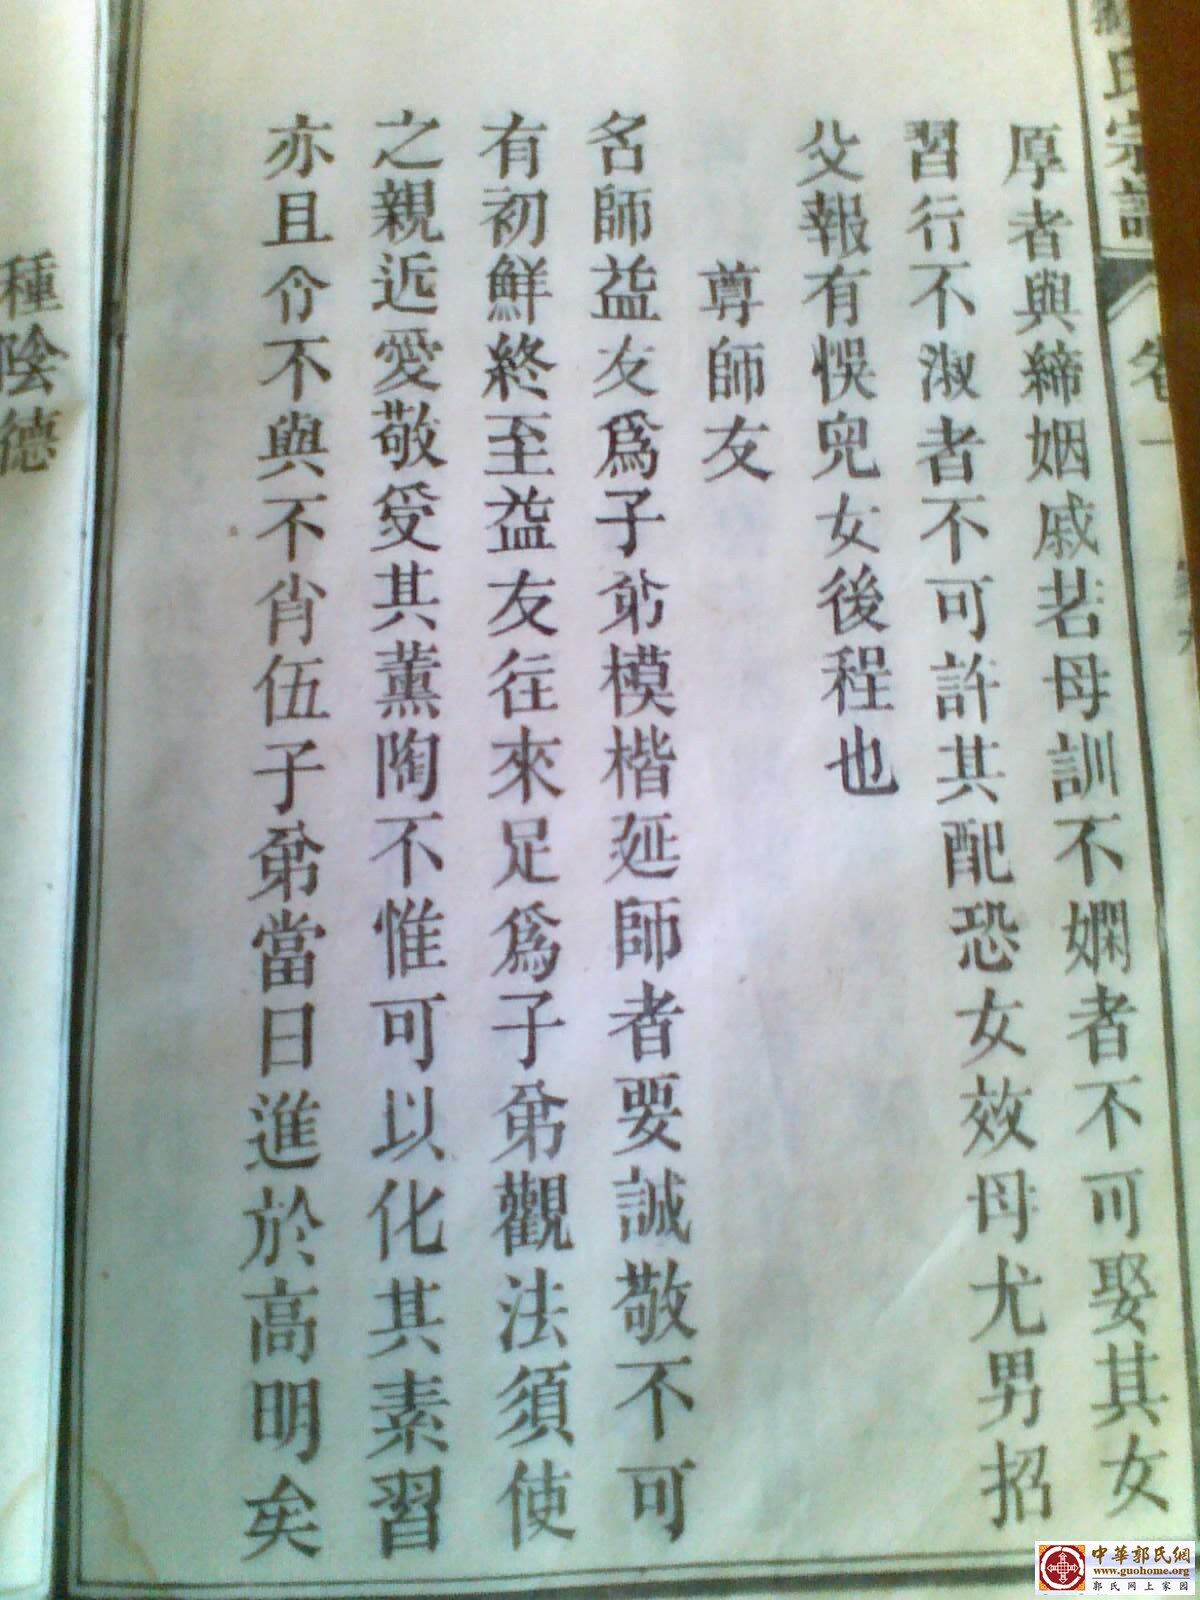 氏宗譜 卷一
厚者與締姻戚若母訓不嫻者不可娶其女女
習行不淑者不可許其配恐女效母尤男招
父報有悞兒女後程也
尊師友
名師益友爲子弟模楷延師者要誠敬不可
有初鮮終至益友往來足爲子弟觀法須使
之親近愛敬受其薰陶不惟可以化其素習
亦且令不與不肖伍子弟當日進於高明矣
種陰德
中華郭氏網
www.guohome.org
郭氏网上家园